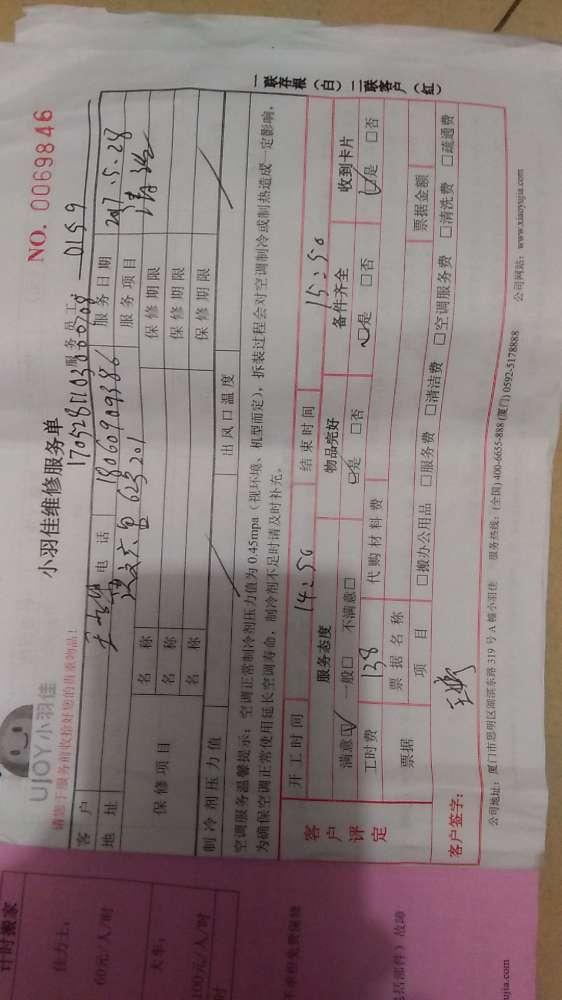 UJOY小羽佳
小羽佳维修服务单
NO. 0069846
请您于服务前收拾好您的贵重物品!
服务员工: 0159
客户
电话 18660909386
服务日期 2017.5.28
地址
服务项目
保修项目
名称
保修期限
名称
保修期限
名称
保修期限
制冷剂压力值
出风口温度
空调服务温馨提示: 空调正常制冷剂压力值为 0.45mpa (视环境、机型而定), 拆装过程会对空调制冷或制热造成一定影响,
为确保空调正常使用延长空调寿命, 制冷剂不足时请及时补充。
一联存根(白)二联客户(红)
客户评定
开工时间 14:50
结束时间 15:50
服务态度
物品完好
备件齐全
收到卡片
满意☑ 一般□ 不满意□
☑是 □否
☑是 □否
☑是 □否
工时费 138
代购材料费
票据
票据名称
票据金额
项目
□搬办公用品 □服务费 □清洁费 □空调服务费 □清洗费 □疏通费
客户签字:
公司地址: 厦门市思明区湖滨东路 319 号 A 幢小羽佳
服务热线: (全国) 400-6655-888 (厦门) 0592-5178888
公司网站: www.xiaoyujia.com
计时搬家
佳力士:
60元/人/时
大车:
100元/人/时
括部件) 故障
jia.com